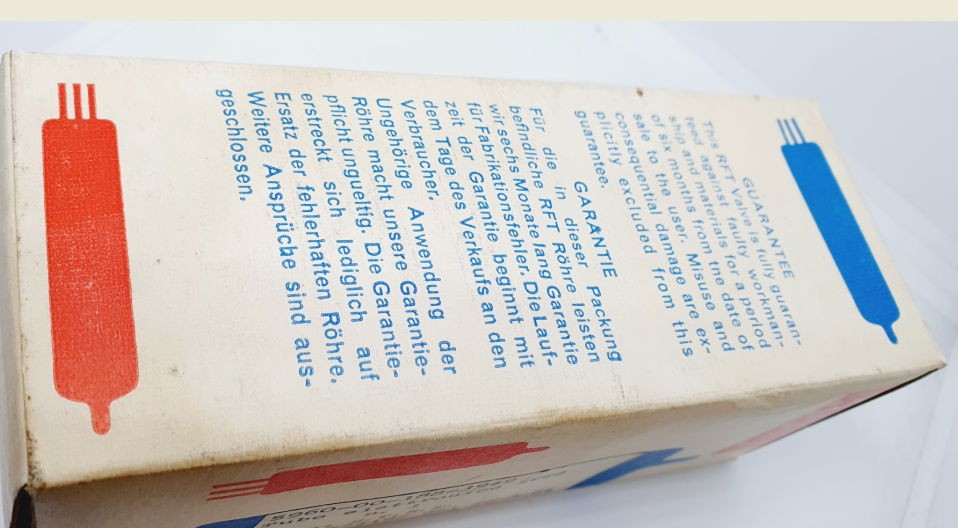 GUARANTEE
This RFT Valve is fully guaran-
teed against faulty workman-
ship and materials for a period
of six months from the date of
sale to the user. Misuse and
consequential damage are ex-
plicitly excluded from this
guarantee.
GARANTIE
Für die in dieser Packung
befindliche RFT Röhre leisten
wir sechs Monate lang Garantie
für Fabrikationsfehler. Die Lauf-
zeit der Garantie beginnt mit
dem Tage des Verkaufs an den
Verbraucher.
Ungehörige Anwendung der
Röhre macht unsere Garantie-
pflicht ungueltig. Die Garantie-
erstreckt sich lediglich auf
Ersatz der fehlerhaften Röhre.
Weitere Ansprüche sind aus-
geschlossen.
5960-00-188-
Tube elektronic